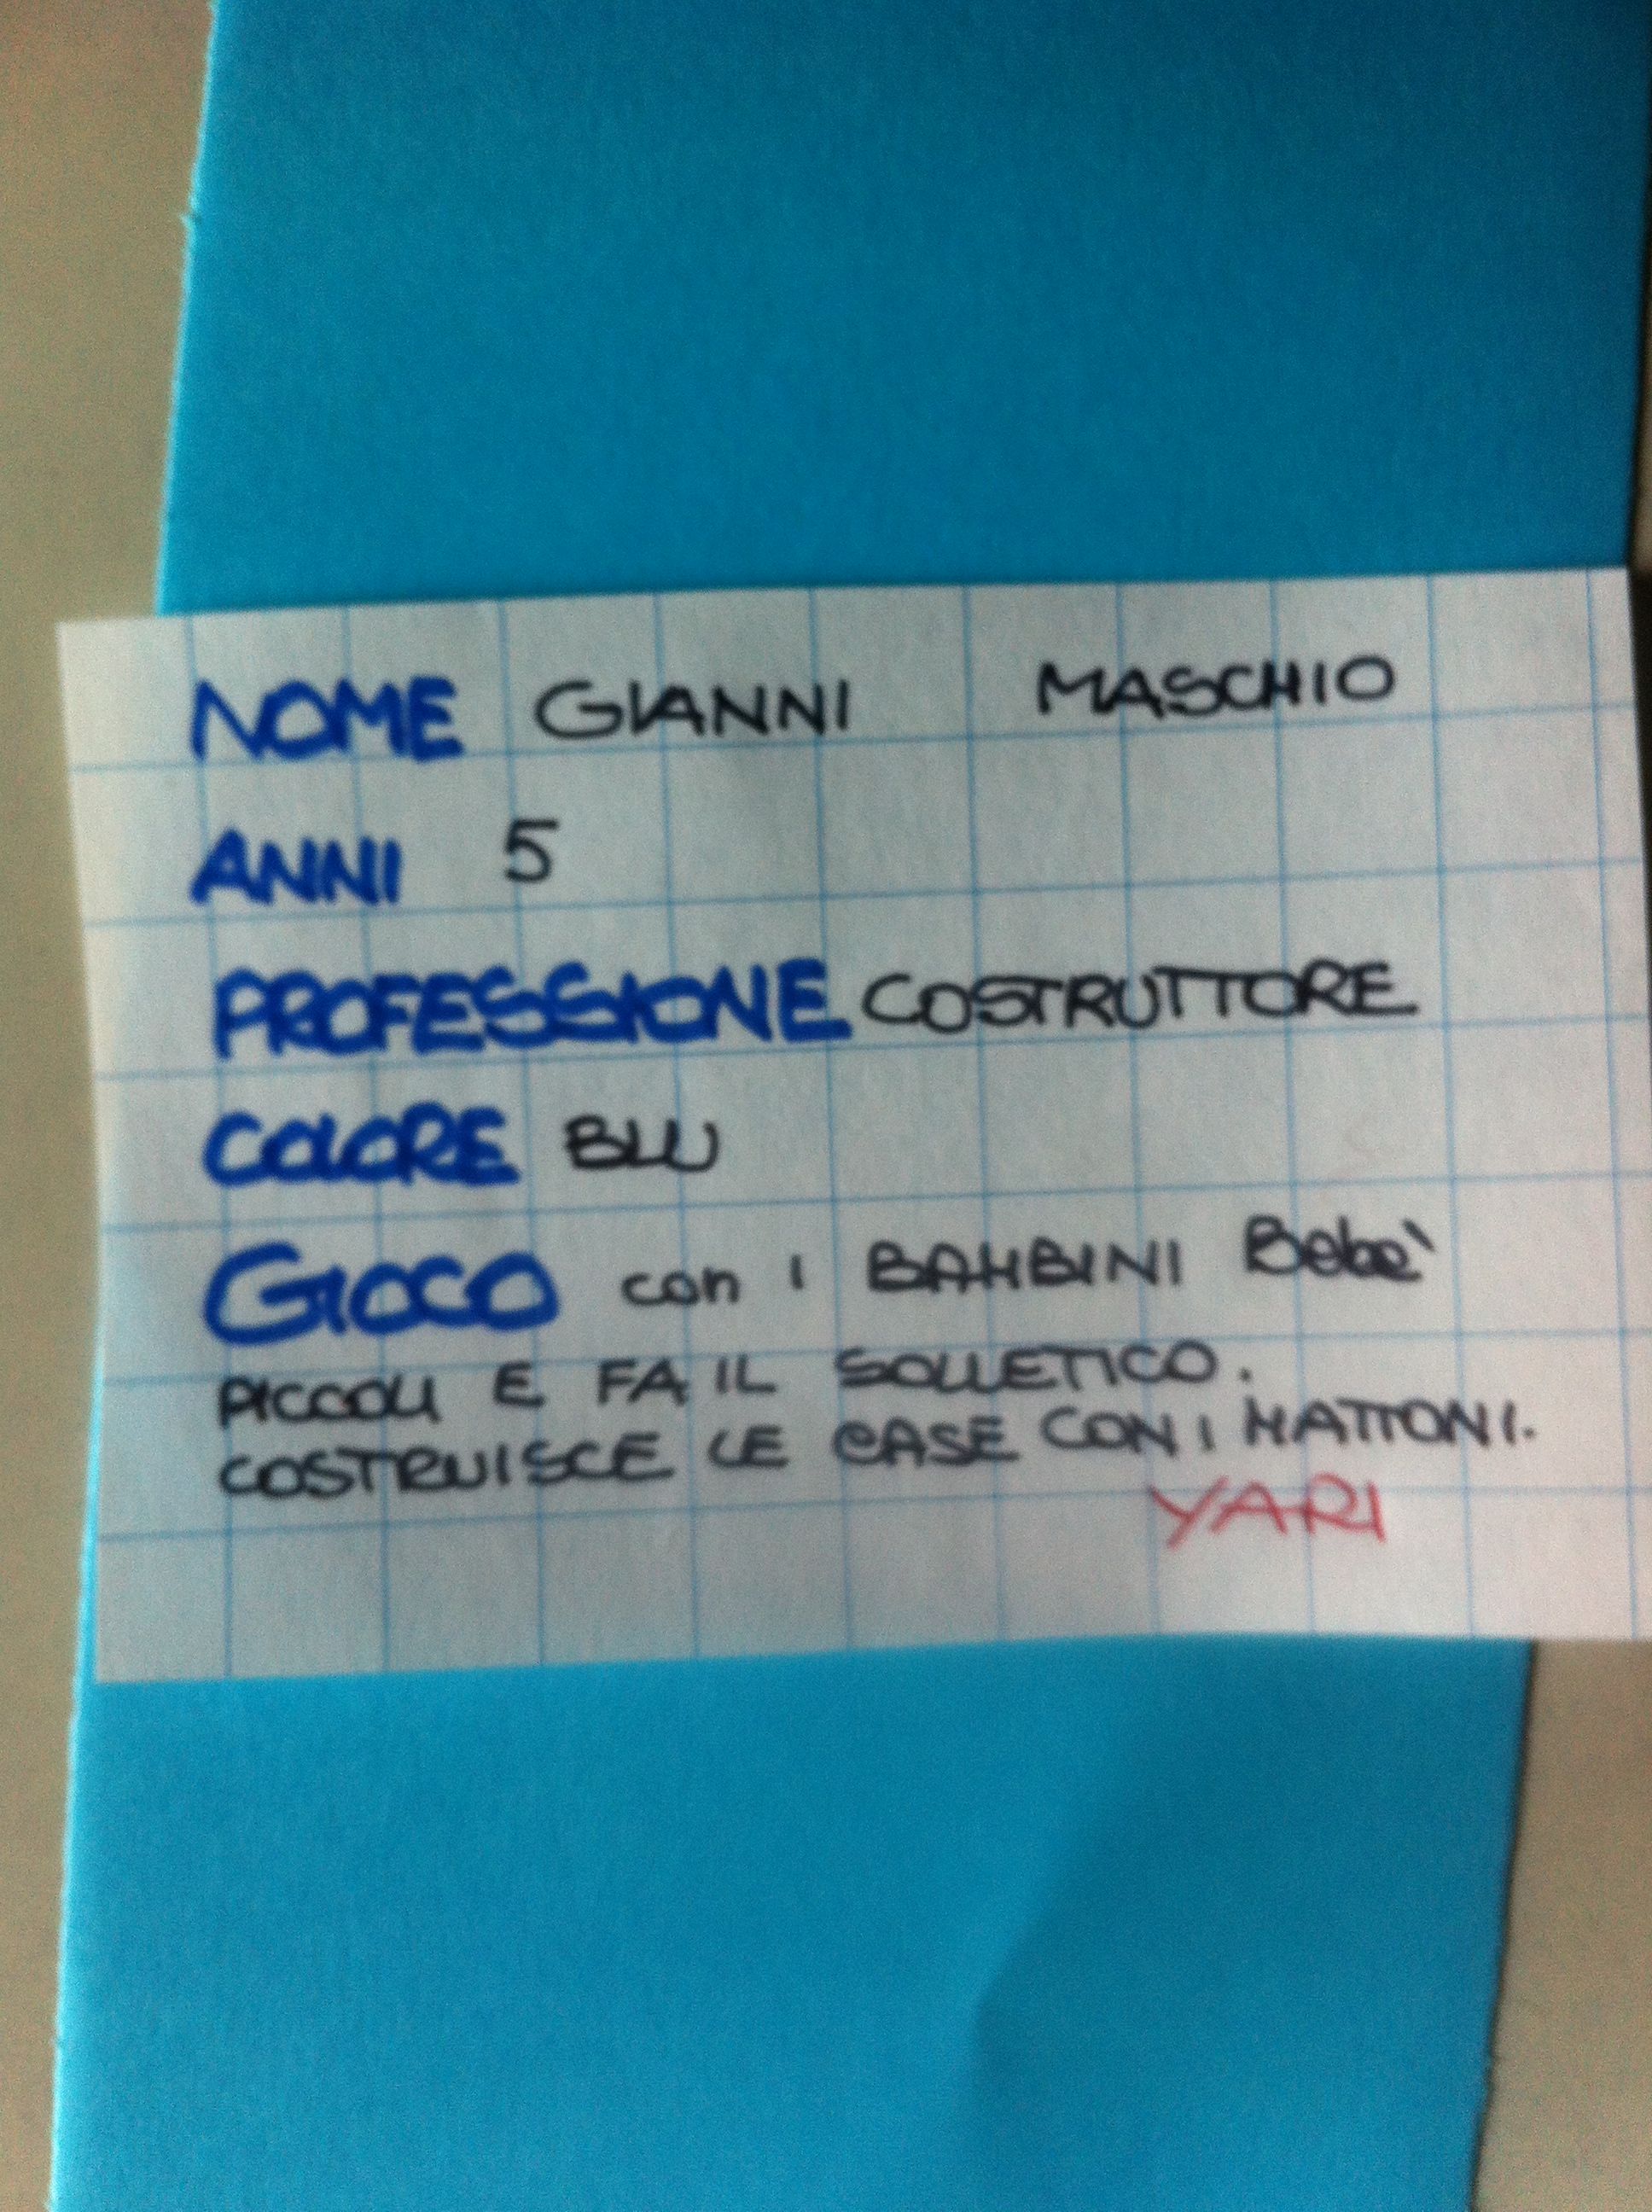 NOME GIANNI MASCHIO
ANNI 5
PROFESSIONE COSTRUTTORE
COLORE BLU
GIOCO con i BAMBINI Bebe'
PICCOLI E FA IL SOLLETICO.
COSTRUISCE LE CASE CON I MATTONI.
YARI